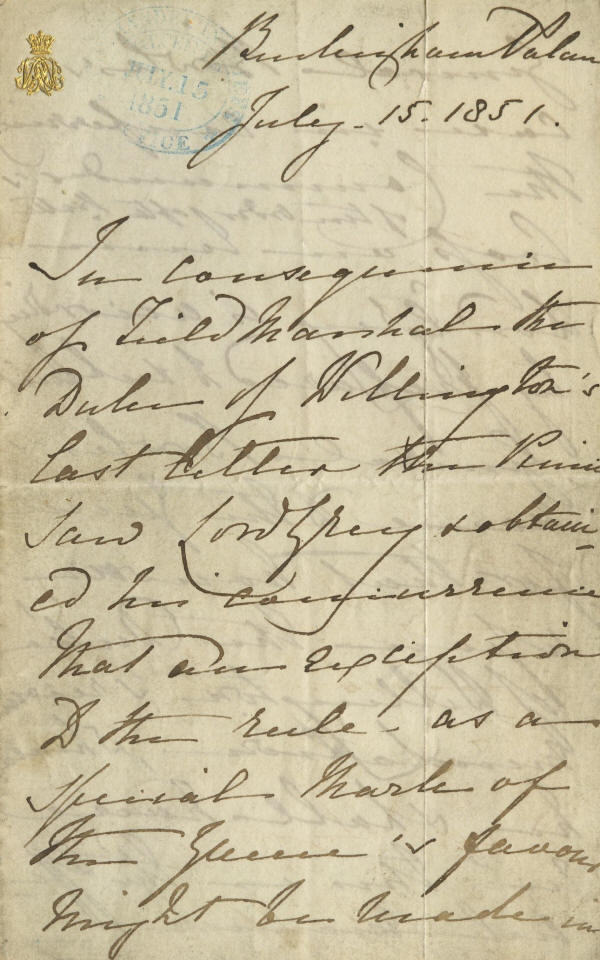 JULY 15
1851
Buckingham Palace
July. 15. 1851.
In consequence
of Field Marshal the
Duke of Wellington's
last letter the
saw Lord Grey & obtain-
ed his concurrence
that an exception
to the rule - as a
special mark of
the Queen's favour
might be made in